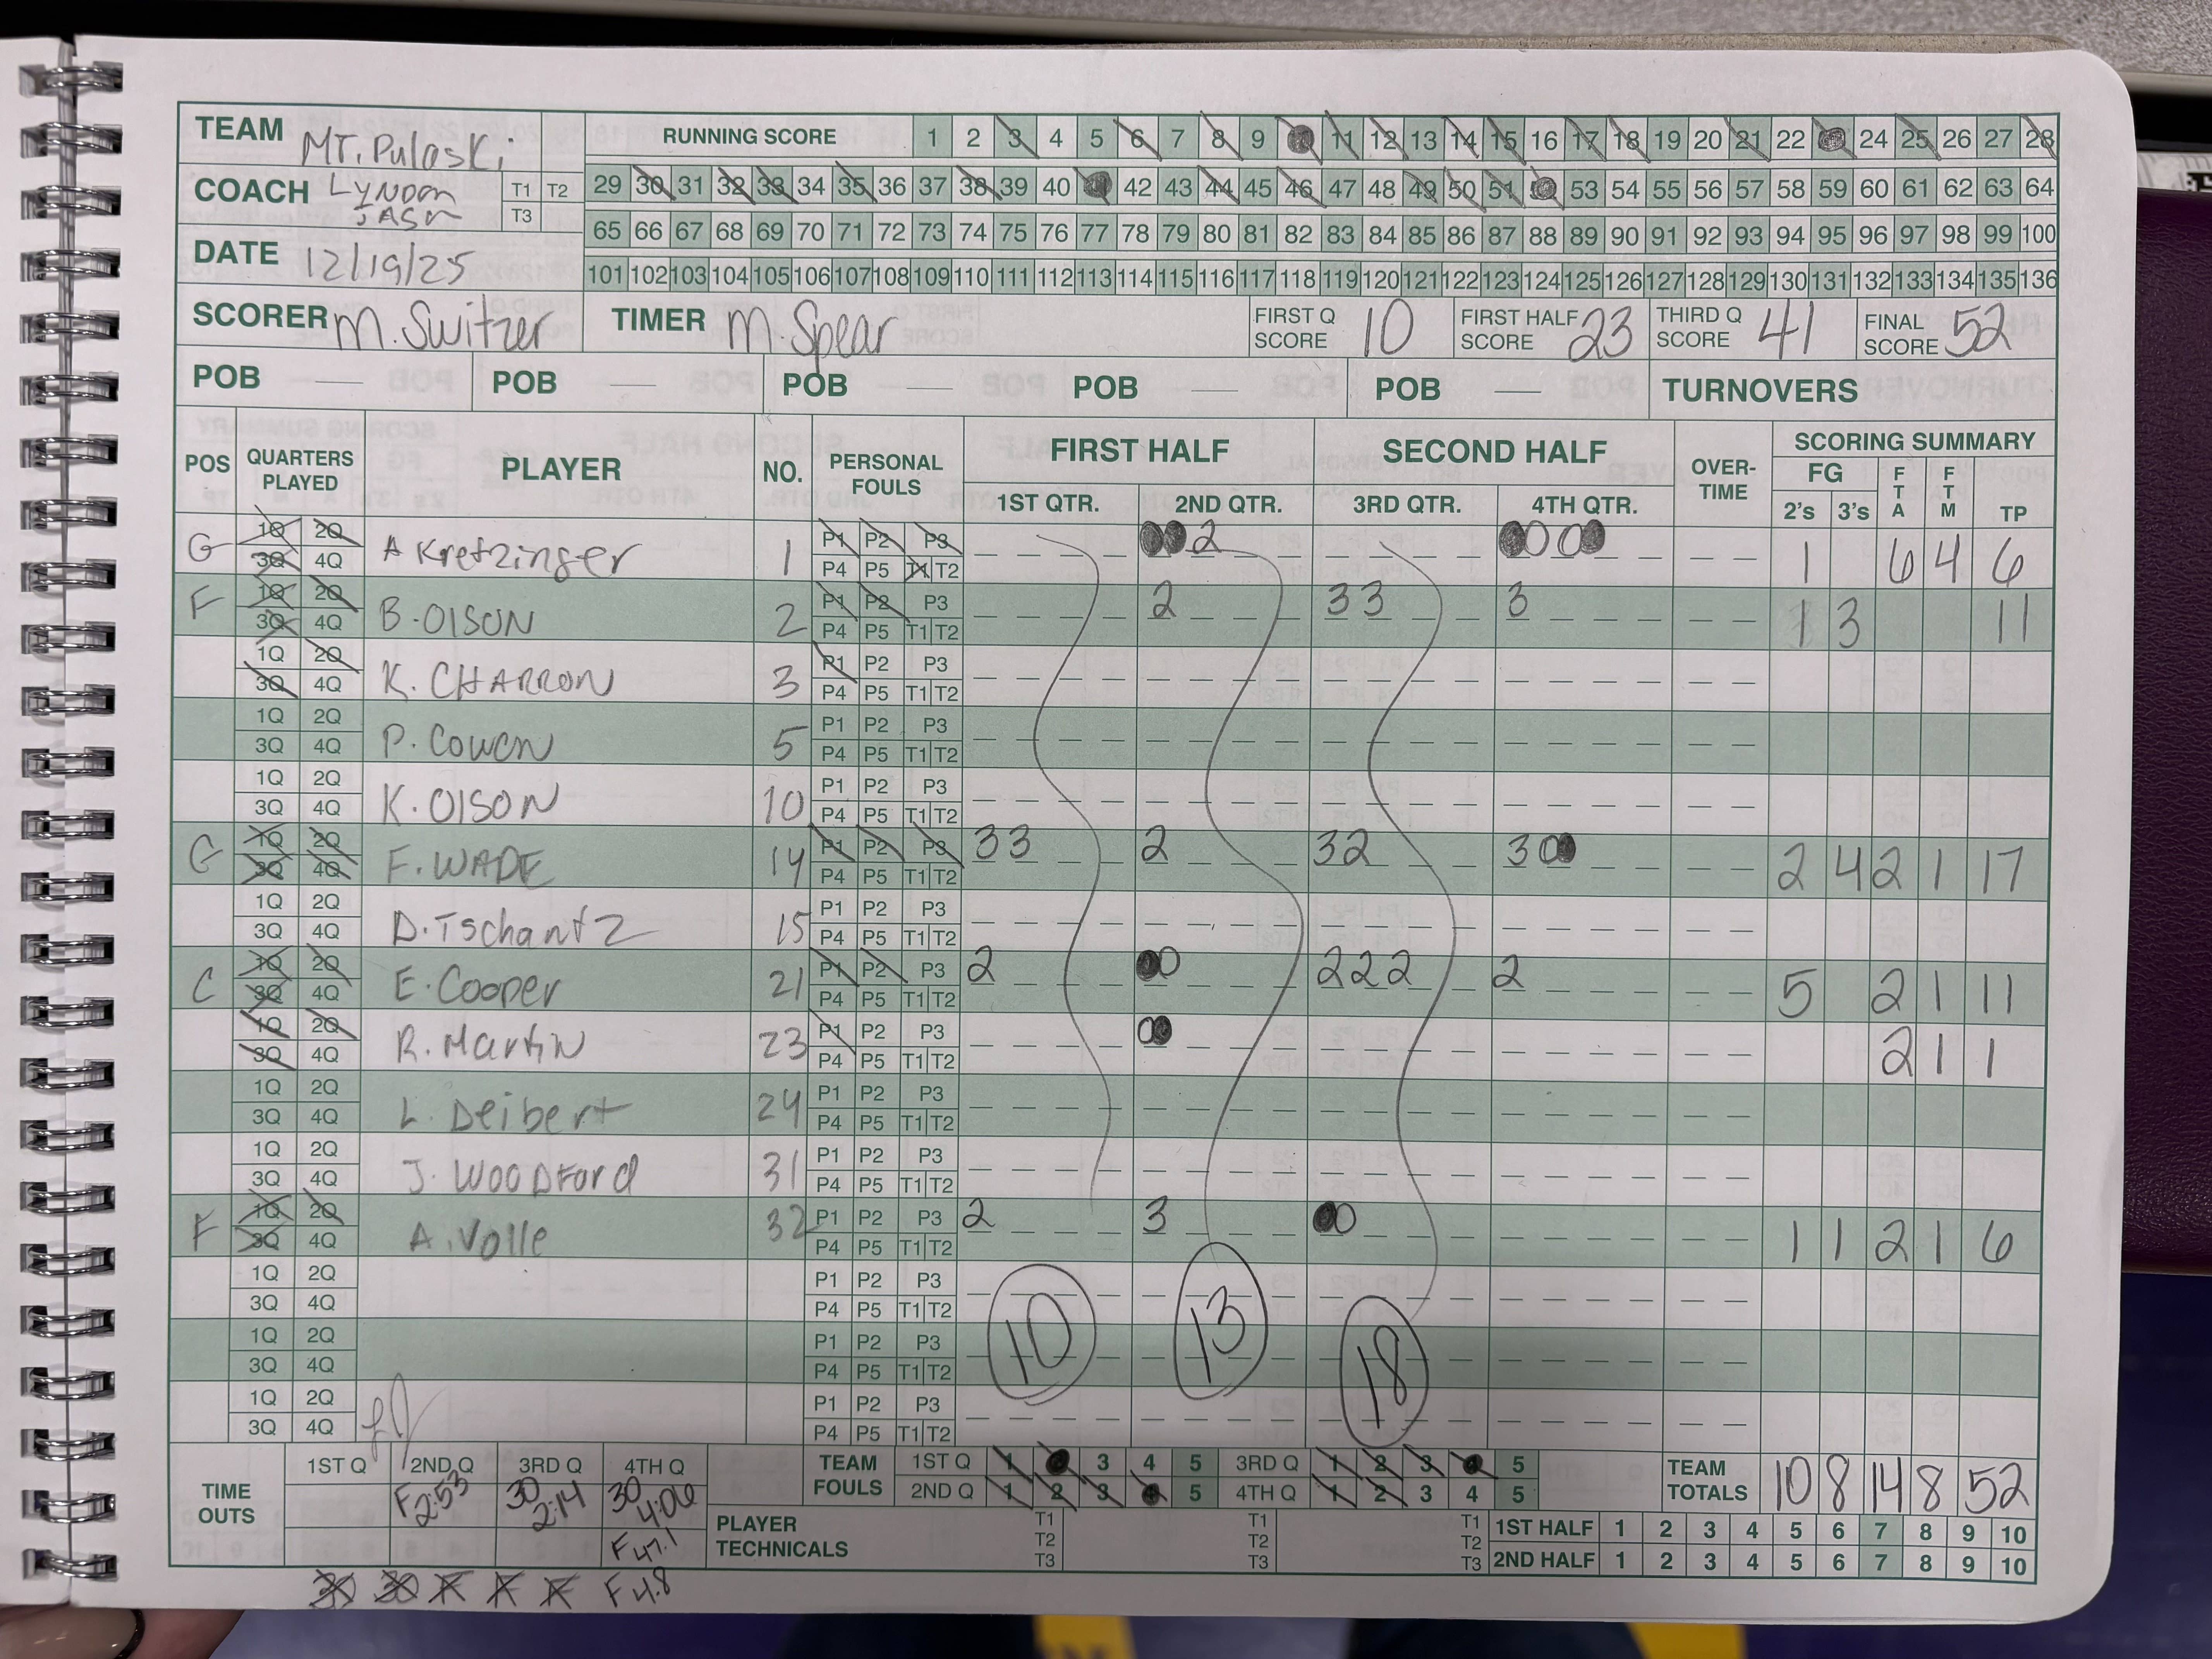 TEAM Mt. Pulaski RUNNING SCORE 1 2 3 4 5 6 7 8 9 10 11 12 13 14 15 16 17 18 19 20 21 22 23 24 25 26 27 28
COACH Lyndon Jason T1 T2 T3 29 30 31 32 33 34 35 36 37 38 39 40 41 42 43 44 45 46 47 48 49 50 51 52 53 54 55 56 57 58 59 60 61 62 63 64
65 66 67 68 69 70 71 72 73 74 75 76 77 78 79 80 81 82 83 84 85 86 87 88 89 90 91 92 93 94 95 96 97 98 99 100
DATE 12/19/25 101 102 103 104 105 106 107 108 109 110 111 112 113 114 115 116 117 118 119 120 121 122 123 124 125 126 127 128 129 130 131 132 133 134 135 136
SCORER M. Switzer TIMER M. Spear FIRST Q SCORE 10 FIRST HALF SCORE 23 THIRD Q SCORE 41 FINAL SCORE 52
POB POB POB POB POB TURNOVERS
POS QUARTERS PLAYED PLAYER NO. PERSONAL FOULS FIRST HALF SECOND HALF OVER-TIME SCORING SUMMARY
1ST QTR. 2ND QTR. 3RD QTR. 4TH QTR. FG 2's 3's FTA FTM TP
G 1Q 2Q 3Q 4Q A Kretzinger 1 P1 P2 P3 P4 P5 T1 T2 2 1 6 4 6
F 1Q 2Q 3Q 4Q B. Olson 2 P1 P2 P3 P4 P5 T1 T2 2 3 3 3 1 3 11
1Q 2Q 3Q 4Q K. CHARRON 3 P1 P2 P3 P4 P5 T1 T2
1Q 2Q 3Q 4Q P. Cowen 5 P1 P2 P3 P4 P5 T1 T2
1Q 2Q 3Q 4Q K. Olson 10 P1 P2 P3 P4 P5 T1 T2
G 1Q 2Q 3Q 4Q F. WADE 14 P1 P2 P3 P4 P5 T1 T2 3 3 2 3 2 3 0 2 4 2 1 17
1Q 2Q 3Q 4Q D. Tschantz 15 P1 P2 P3 P4 P5 T1 T2
C 1Q 2Q 3Q 4Q E. Cooper 21 P1 P2 P3 P4 P5 T1 T2 2 0 2 2 2 2 5 2 1 11
1Q 2Q 3Q 4Q R. Martin 23 P1 P2 P3 P4 P5 T1 T2 0 2 1 1
1Q 2Q 3Q 4Q L. Deibert 24 P1 P2 P3 P4 P5 T1 T2
1Q 2Q 3Q 4Q J. Woodford 31 P1 P2 P3 P4 P5 T1 T2
F 1Q 2Q 3Q 4Q A. Volle 32 P1 P2 P3 P4 P5 T1 T2 2 3 0 1 1 2 1 6
1Q 2Q 3Q 4Q P1 P2 P3 P4 P5 T1 T2
1Q 2Q 3Q 4Q P1 P2 P3 P4 P5 T1 T2 10 13 18
1Q 2Q 3Q 4Q P1 P2 P3 P4 P5 T1 T2
TIME OUTS 1ST Q 2ND Q 3RD Q 4TH Q TEAM FOULS 1ST Q 1 2 3 4 5 3RD Q 1 2 3 4 5 TEAM TOTALS 10 8 14 8 52
F 2:53 30 2:14 30 4:06 2ND Q 1 2 3 4 5 4TH Q 1 2 3 4 5
F 47.1 PLAYER TECHNICALS T1 T2 T3 T1 T2 T3 T1 T2 T3 1ST HALF 1 2 3 4 5 6 7 8 9 10
2ND HALF 1 2 3 4 5 6 7 8 9 10
30 30 F F F F 4.8